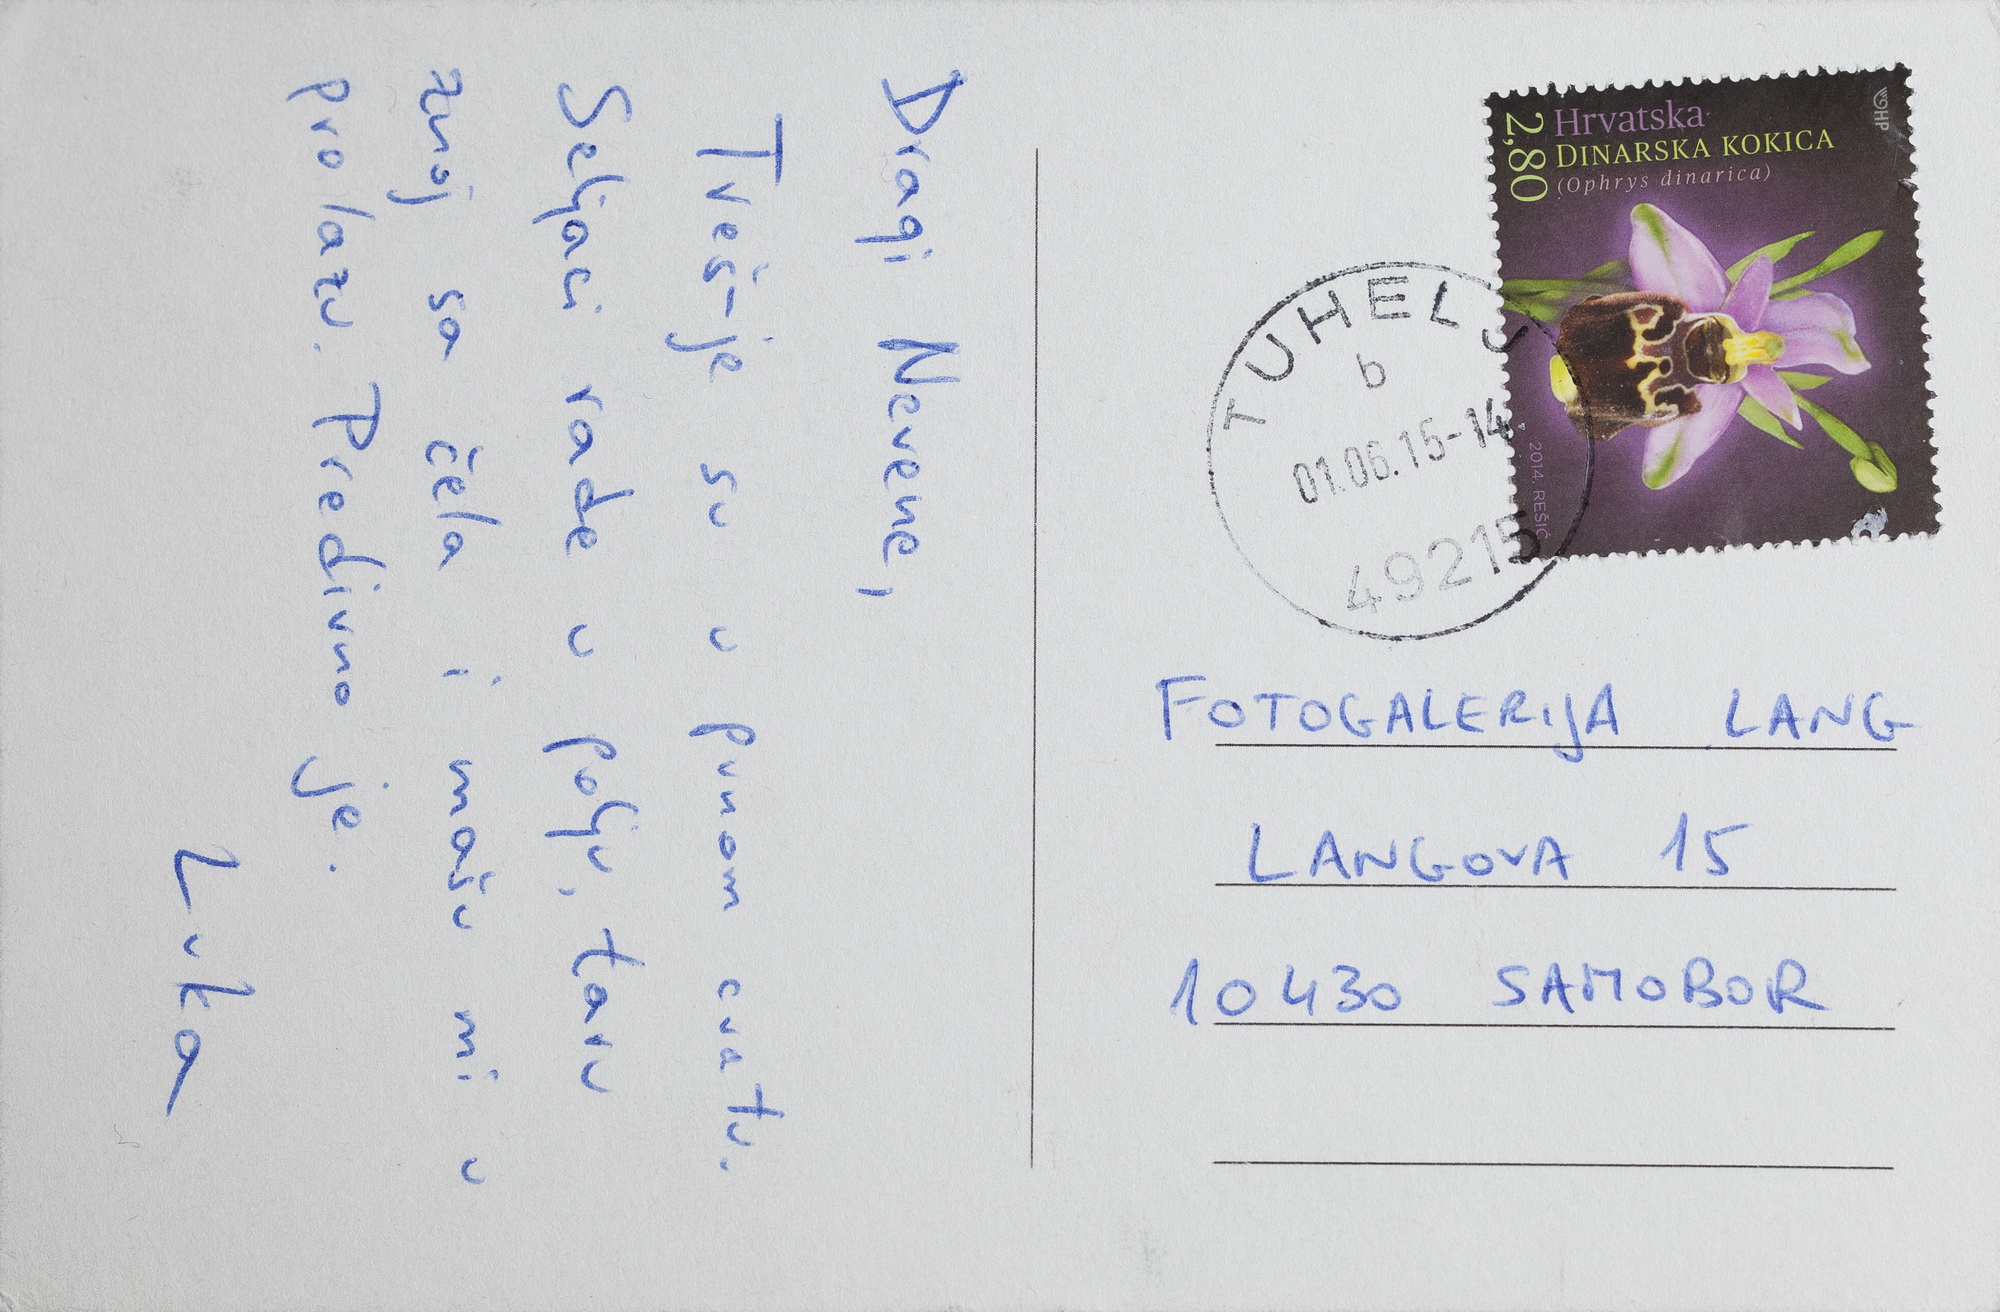 Dragi Nevene,
Treš-je su u punom cvatu.
Seljaci rade u polju, taru
znoj sa čela i mašu mi u
prolazu. Predivno je.
Luka
HP
Hrvatska
2,80
DINARSKA KOKICA
(Ophrys dinarica)
2014. REŠIĆ
TUHELJ
b
01.06.15-14
49215
FOTOGALERIJA LANG
LANGOVA 15
10430 SAMOBOR